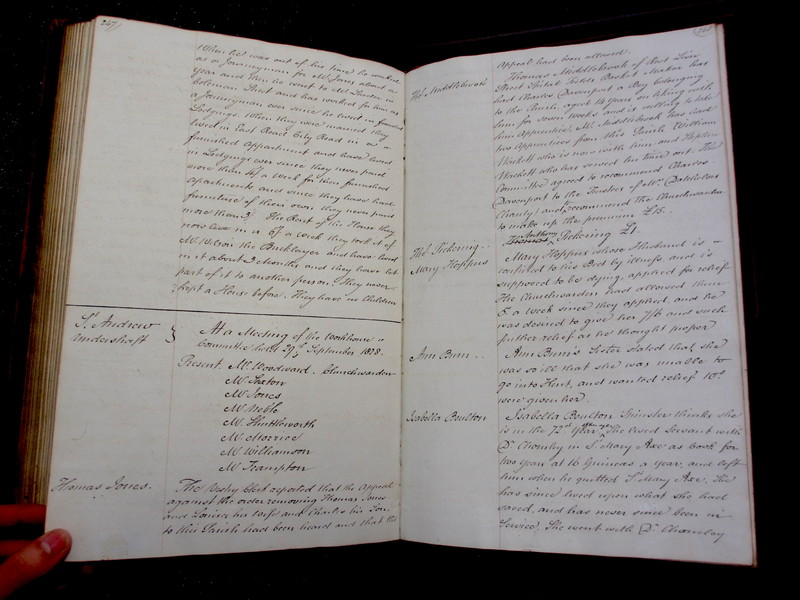 247
When he was out of his time he worked
as a Journeyman for Mr Jones about a
year and then he went to Mr
Coleman Street and has worked for him as
a Journeyman ever since he lived in furnished
Lodgings. When they were married they
lived in East Road City Road in a
furnished Apartment and have lived
in Lodgings ever since they never paid
more than a Week for their furnished
apartments and since they have had
furniture of their own they never paid
more than The Rent of the House they
now live in is a Week they took it of
Mr the Bricklayer and have lived
in it about 3 Months and they have let
part of it to another person. They never
kept a House before. They have no Children
St. Andrew
Undershaft
At a Meeting of the Workhouse
Committee held 29th September 1828.
Present. Mr. Woodward. Churchwarden
Mr. Saxton
Mr. Jones
Mr. Noble
Mr. Shuttleworth
Mr. Morrice
Mr. Williamson
Mr. Frampton
Thomas Jones.
The Vestry Clerk reported that the Appeal
against the order removing Thomas Jones
and Louisa his Wife and Charles his Son
to this Parish had been heard and that the
Appeal had been allowed.
Thos. Middlebrook
Thomas Middlebrook of Red Lion
Street Spital Fields Basket Maker has
had Charles Davenport a Boy belonging
to the Parish aged 14 years on liking with
him for seven Weeks and is willing to take
him Apprentice, Mr. Middlebrook has had
two Apprentices from this Parish William
Wackett who is now with him and
Wackett who has served his time out. The
Committee agreed to recommend Charles
Davenport to the Trustees of Mr.
Charity and recommend the Churchwarden
to make up the premium £15.
Thos. Pickering
Anthony
Pickering £1.
Mary Hoppus
Mary Hoppus whose Husband is
confined to his Bed by illness and is
supposed to be dying, applied for relief
The Churchwarden had allowed them
5/. a week since they applied and he
was desired to give her 7/6 and such
further relief as he thought proper
Ann Bunn
Ann Bunn's Sister stated that she
was so ill that she was unable to
go into Kent, and wanted relief 10/.
were given her.
Isabella Boulton
Isabella Boulton Spinster thinks she
is in the 72d Year of her age She lived Servant with
Dr. Chomley in St. Mary Axe as Cook for
two years at 16 Guineas a year, and left
him when he quitted St. Mary Axe. She
has since lived upon what she had
saved, and has never since been in
Service. She went with Dr. Chomley